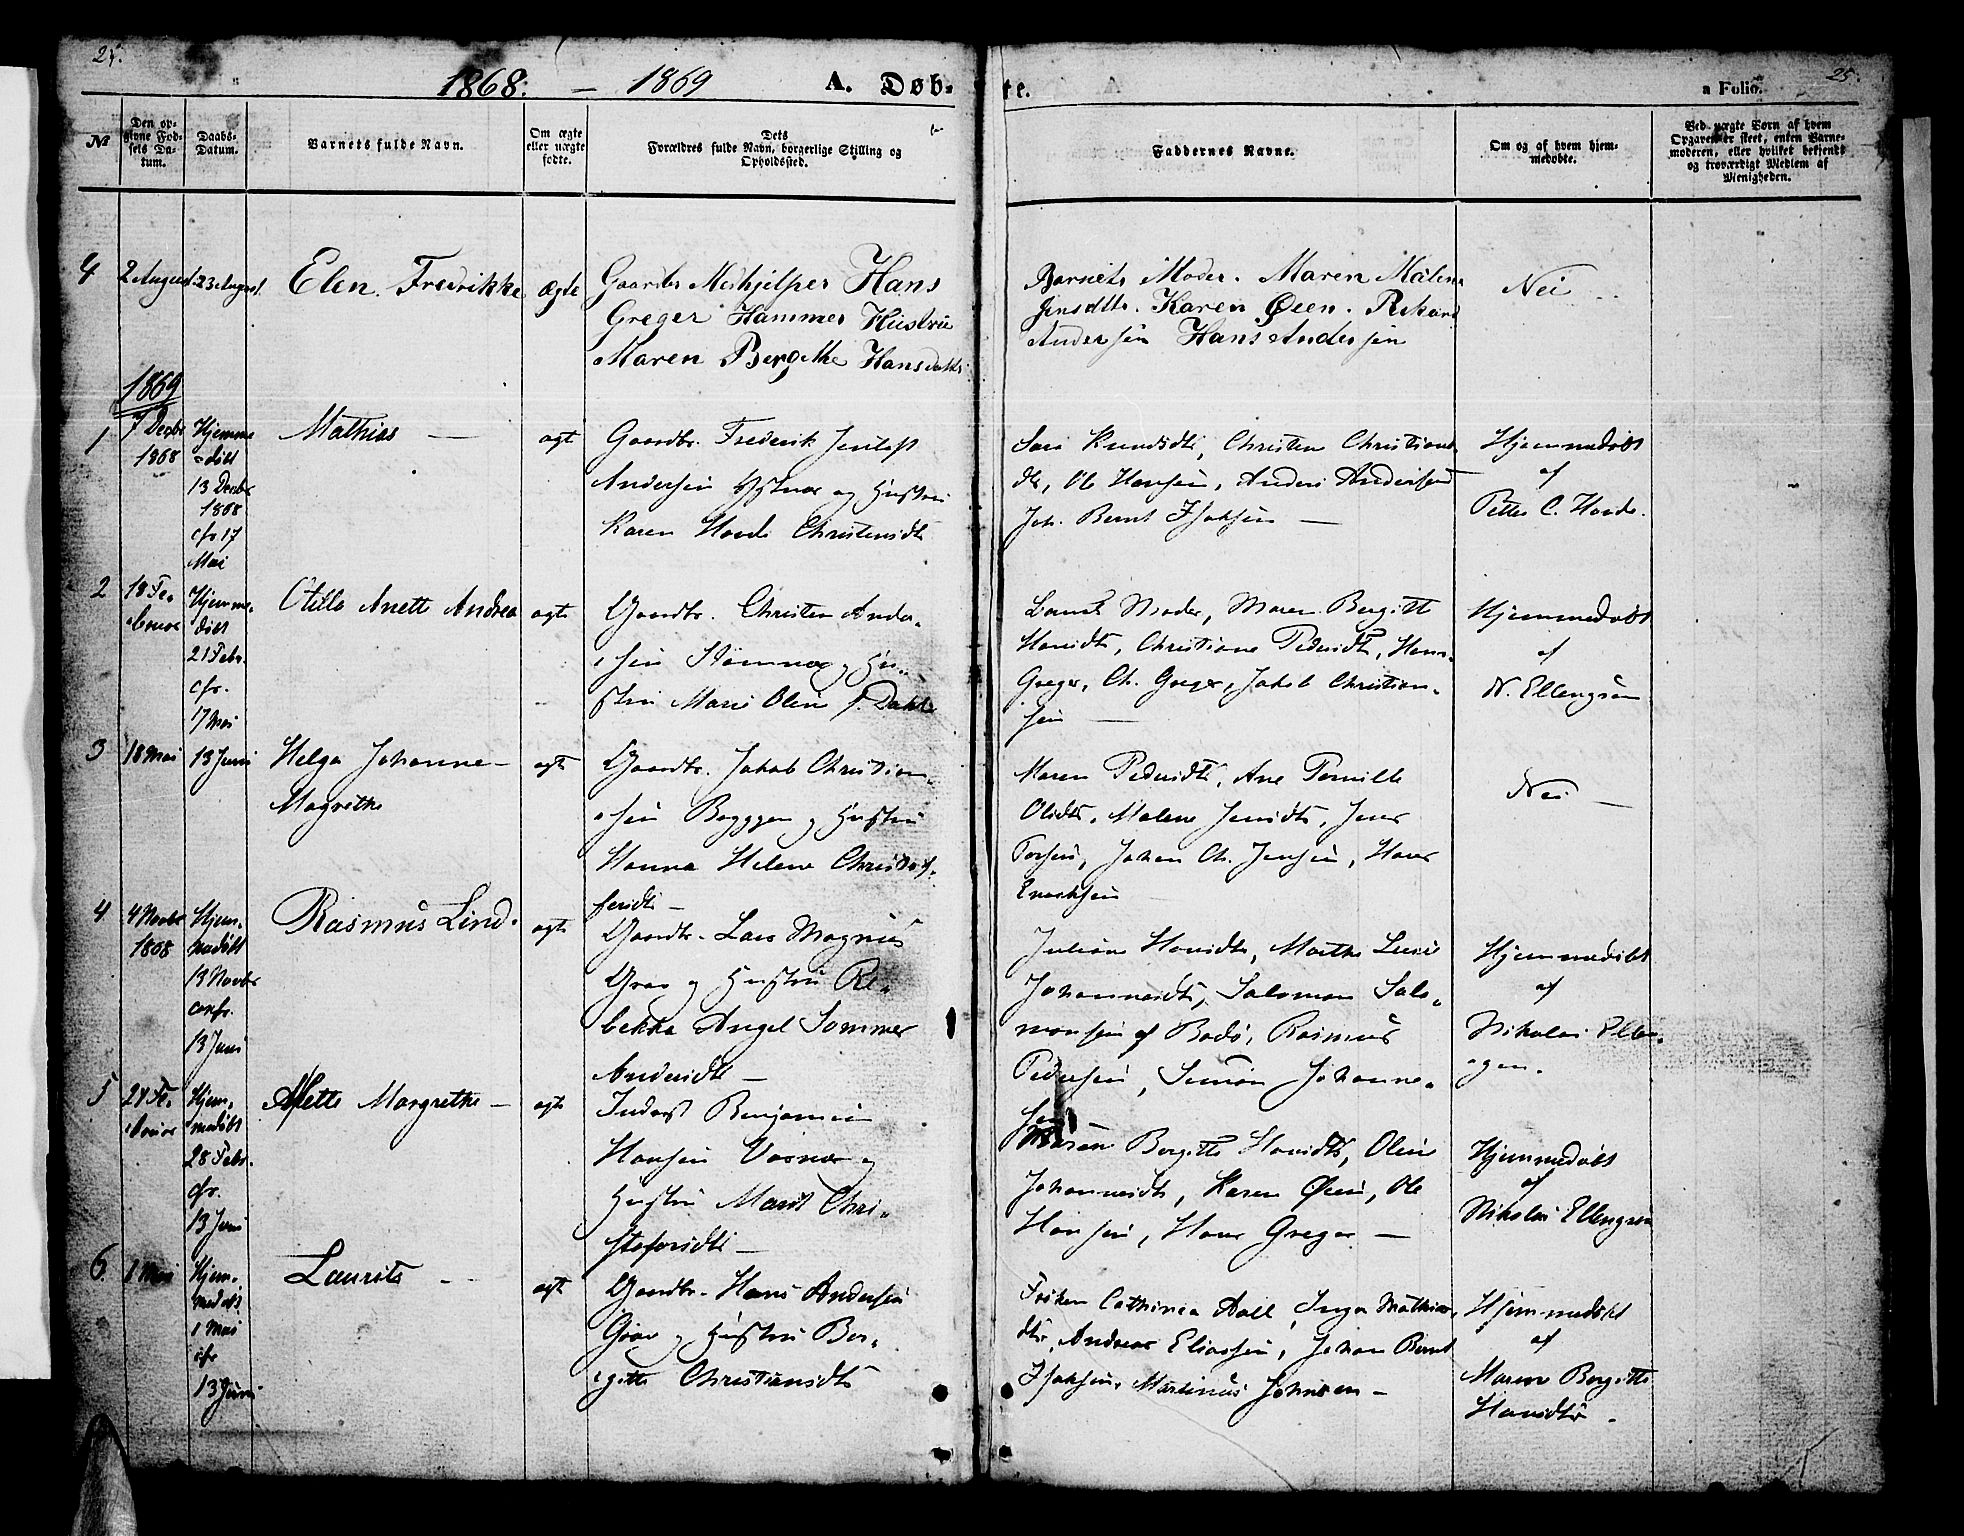 25.
1868. – 1869 A. Døb-
te. a Folio. 25.
№
Den op-
givne Fød-
sels Da-
tum.
Daabs-
Datum.
Barnets fulde Navn.
Om ægte
eller uægte
fødte.
Dets
Forældres fulde Navn, borgerlige Stilling og
Opholdssted.
Faddernes Navne.
Om og af hvem hjem-
medøbte.
Ved uægte Børn af hvem
Opgaven er skeet, enten Barne-
moderen, eller hvilket bekjendt
og troværdigt Medlem af
Menigheden.
4
2 August
23 August
Elen Fredrikke
ægte
Gaardbr Medhjelper Hans
Greger Hammer Hustrue
Maren Bergitte Hansdatter
Barnets Moder. Maren Malena
Jensdtr. Karen Øien. Rikard
Andersen Hans Andersen
Nei
1869
1
7 Decbr
1868
Hjemme
døbt
13 Decbr
1868
cfr 17
Mai
Mathias —
ægt
Gaardbr. Frederik
Andersen og Hustru
Karen Christensdtr
Christen
dtr, Ole Hansen, Anders Andersen
Joh. Bernt Isaksen —
Hjemmedøbt
af
Petter C. Hovde.
2
18 Fe-
bruar
Hjemme-
døbt
21 Febr.
cfr.
17 Mai
Anette Andrea
ægte
Gaardbr. Christen Ander-
sen og Hu-
stru Marie Oline
Barnets Moder, Maren Bergitte
Hansdtr, Christiane Pedersdtr, Hans
Greger, Ch. Greger, Jakob Christian-
sen —
Hjemmedøbt
af
N. Ellengsen
3
18 Mai
13 Juni
Helga Johanne
Magrethe
ægt
Gaardbr. Jakob Christian-
sen og Hustru
Hanna Helena Christof-
fersdtr —
Maren Pedersdtr, Ane Pernille
Olsdtr, Malene Jensdtr, Jens
Johan Ch. Jensen, Hans
Enoksen
Nei —
4
4 Novbr
1868
Hjem-
medøbt
13 Novbr
confr.
13 Juni
Rasmus Lind.
ægte
Gaardbr. Lars Magnus
og Hustru Re-
bekka Angel Sommer
Andersdtr —
Juliane Hansdtr, Marthe Lucie
Johannesdtr, Salomon Salo-
monsen af Bodø, Rasmus
Pedersen, Simon Johanne-
sen
Hjemmedøbt
af
Nikolai Ellen-
gsen.
5
24 Fe-
bruar
Hjem-
medøbt
28 Febr.
cfr.
13 Juni
Mette Margrethe —
ægt
Inderst Benjamin
Hansen og
Hustru Marit Chri-
stofersdtr —
Maren Bergitte Hansdtr, Oline
Johannesdtr, Karen Øien, Ole
Hansen, Hans Greger —
Hjemmedøbt
af
Nikolai Ellengsen
6.
1 Mai
Hjem-
medøbt
1 Mai
cfr
13 Juni
Laurits
ægt
Gaardbr. Hans Andersen
og Hustru Ber-
gitte Christiansdtr
Frøken Cathinca Aall, Inga Mathias
dtr, Andreas Eliassen, Johan Bernt
Isaksen, Martinus Johnsen —
Hjemmedøbt
af
Maren Bergitte
Hansdtr.